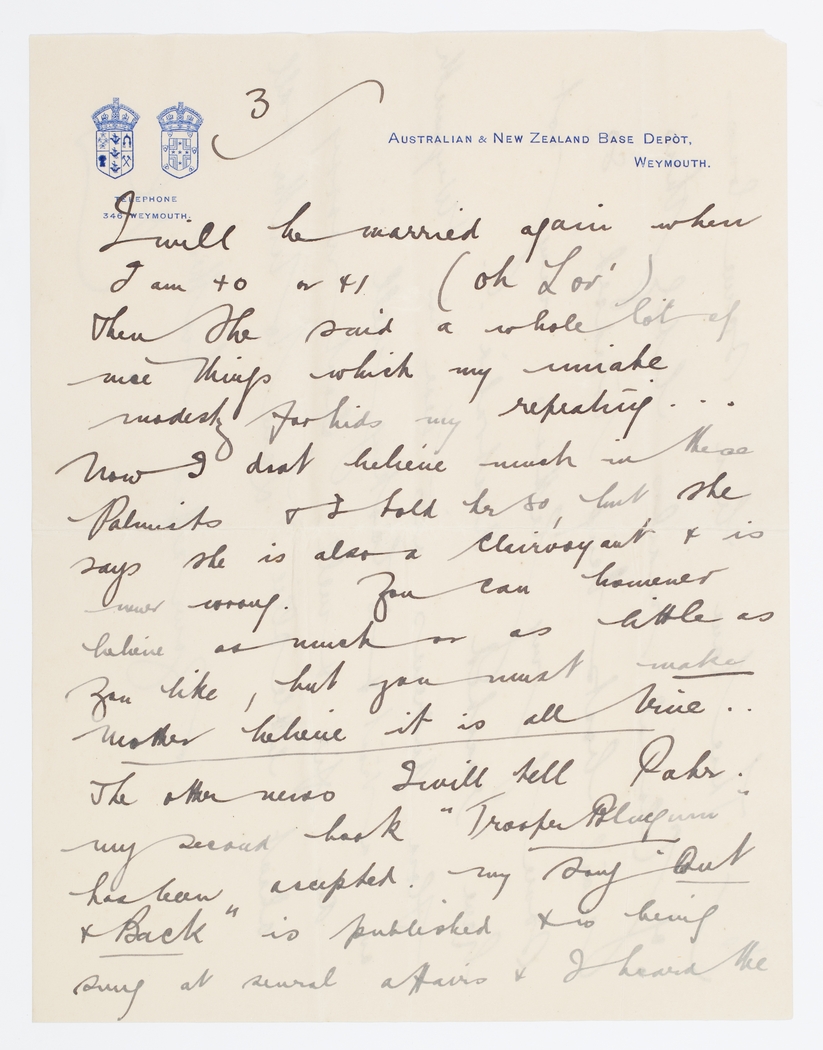 3
AUSTRALIAN & NEW ZEALAND BASE DEPÒT,
WEYMOUTH.
TELEPHONE
346 WEYMOUTH.
I will be married again when
I am 40 or 41 (oh Lor')
Then she said a whole lot of
nice things which my innate
modesty forbids my repeating...
Now I dont believe much in these
Palmists & I told her so, but she
says she is also a clairvoyant, & is
never wrong. You can however
believe as much or as little as
you like, but you must make
mother believe it is all true..
The other news I will tell Pater.
my second book "Trooper Bluegum"
has been accepted. my song "Out
& Back" is published & is being
sung at several affairs & I heard the